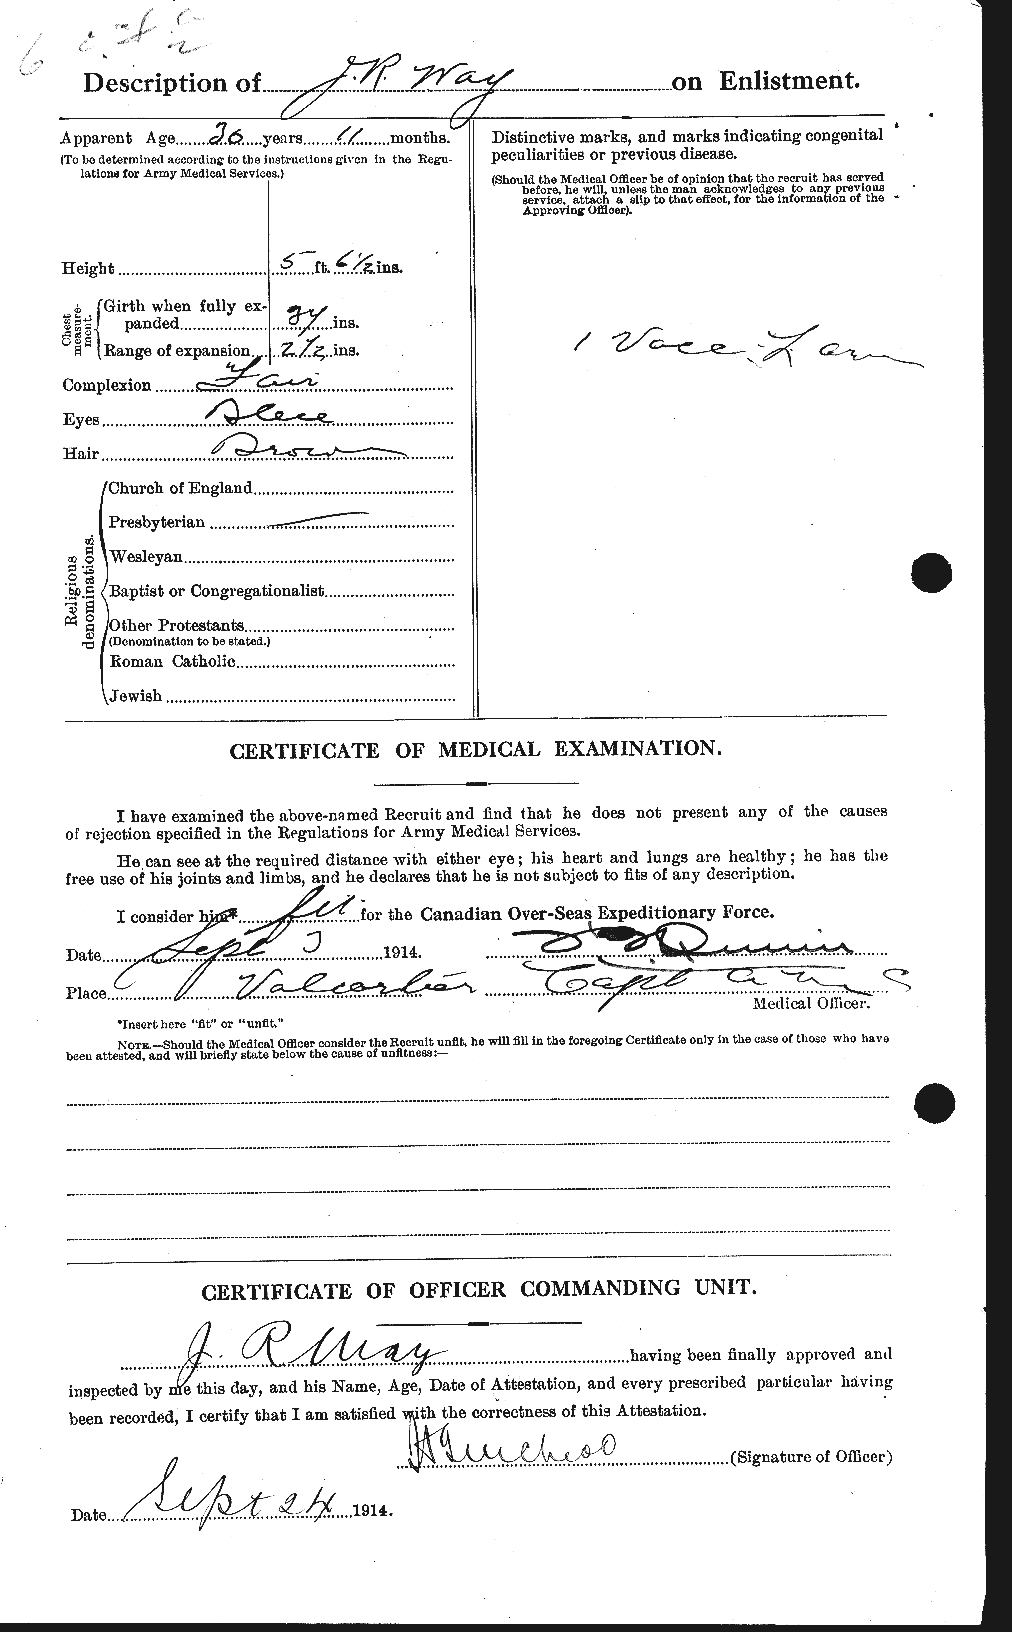 Description of J. R. Way on Enlistment.
Apparent Age 36 years 11 months.
(To be determined according to the instructions given in the Regu-
lations for Army Medical Services.)
Height 5 ft. 6 1/2 ins.
Chest measure-ment.
Girth when fully ex-
panded 37 ins.
Range of expansion 2 1/2 ins.
Complexion Fair
Eyes Blue
Hair Brown
Religious denominations.
Church of England
Presbyterian
Wesleyan
Baptist or Congregationalist
Other Protestants
(Denomination to be stated.)
Roman Catholic
Jewish
Distinctive marks, and marks indicating congenital
peculiarities or previous disease.
(Should the Medical Officer be of opinion that the recruit has served
before, he will, unless the man acknowledges to any previous
service, attach a slip to that effect, for the information of the
Approving Officer).
1 Vacc. L arm
CERTIFICATE OF MEDICAL EXAMINATION.
I have examined the above-named Recruit and find that he does not present any of the causes
of rejection specified in the Regulations for Army Medical Services.
He can see at the required distance with either eye; his heart and lungs are healthy; he has the
free use of his joints and limbs, and he declares that he is not subject to fits of any description.
I consider him* fit for the Canadian Over-Seas Expeditionary Force.
Date Sept 1914.
Place Valcartier Capt A M C
Medical Officer.
*Insert here "fit" or "unfit."
NOTE.—Should the Medical Officer consider the Recruit unfit, he will fill in the foregoing Certificate only in the case of those who have
been attested, and will briefly state below the cause of unfitness:—
CERTIFICATE OF OFFICER COMMANDING UNIT.
J. R Way having been finally approved and
inspected by me this day, and his Name, Age, Date of Attestation, and every prescribed particular having
been recorded, I certify that I am satisfied with the correctness of this Attestation.
(Signature of Officer)
Date Sept 24 1914.